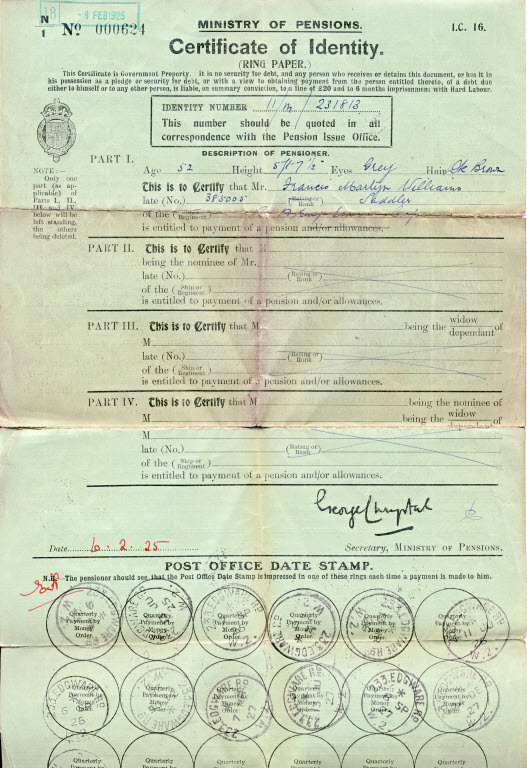 18
-6 FEB 1925
N
1
No 000624
MINISTRY OF PENSIONS.
I.C. 16.
Certificate of Identity.
(RING PAPER.)
This Certificate is Government Property. It is no security for debt, and any person who receives or detains this document, or has it in
his possession as a pledge or security for debt, or with a view to obtaining payment from the person entitled thereto, of a debt due
either to himself or to any other person, is liable, on summary conviction, to a fine of £20 and to 6 months imprisonment with Hard Labour.
IDENTITY NUMBER 11/M/ 231813
This number should be quoted in all
correspondence with the Pension Issue Office.
NOTE:—
Only one
part (as ap-
plicable) of
Parts I., II.,
III. and IV.
below will be
left standing,
the others
being deleted.
DESCRIPTION OF PENSIONER.
PART I.
Age 52 Height 5ft 7½" Eyes Grey Hair Dk Brown
This is to Certify that Mr. Francis Martyn Williams
late (No.) 385005 (Rating or Rank) Saddler
of the (Ship or Regiment)
is entitled to payment of a pension and/or allowances.
PART II. This is to Certify that M
being the nominee of Mr.
late (No.) (Rating or Rank)
of the (Ship or Regiment)
is entitled to payment of a pension and/or allowances.
PART III. This is to Certify that M being the widow
dependant of
M
late (No.) (Rating or Rank)
of the (Ship or Regiment)
is entitled to payment of a pension and/or allowances.
PART IV. This is to Certify that M being the nominee of
M being the widow
dependant of
M
late (No.) (Rating or Rank)
of the (Ship or Regiment)
is entitled to payment of a pension and/or allowances.
George Chrystal
Date 6.2.25
Secretary, MINISTRY OF PENSIONS.
POST OFFICE DATE STAMP.
N.B. The pensioner should see that the Post Office Date Stamp is impressed in one of these rings each time a payment is made to him.
Quarterly Payment by Money Order
Quarterly Payment by Money Order
Quarterly Payment by Money Order
Quarterly Payment by Money Order
Quarterly Payment by Money Order
Quarterly Payment by Money Order
233. EDGWARE RD. W.2.
Quarterly Payment by Money Order
Quarterly Payment by Money Order
Quarterly Payment by Money Order
Quarterly Payment by Money Order
Quarterly Payment by Money Order
Quarterly Payment by Money Order
233. EDGWARE RD. W.2.
Quarterly Payment by
Quarterly Payment by
Quarterly Payment by
Quarterly Payment by
Quarterly Payment by
Quarterly Payment by